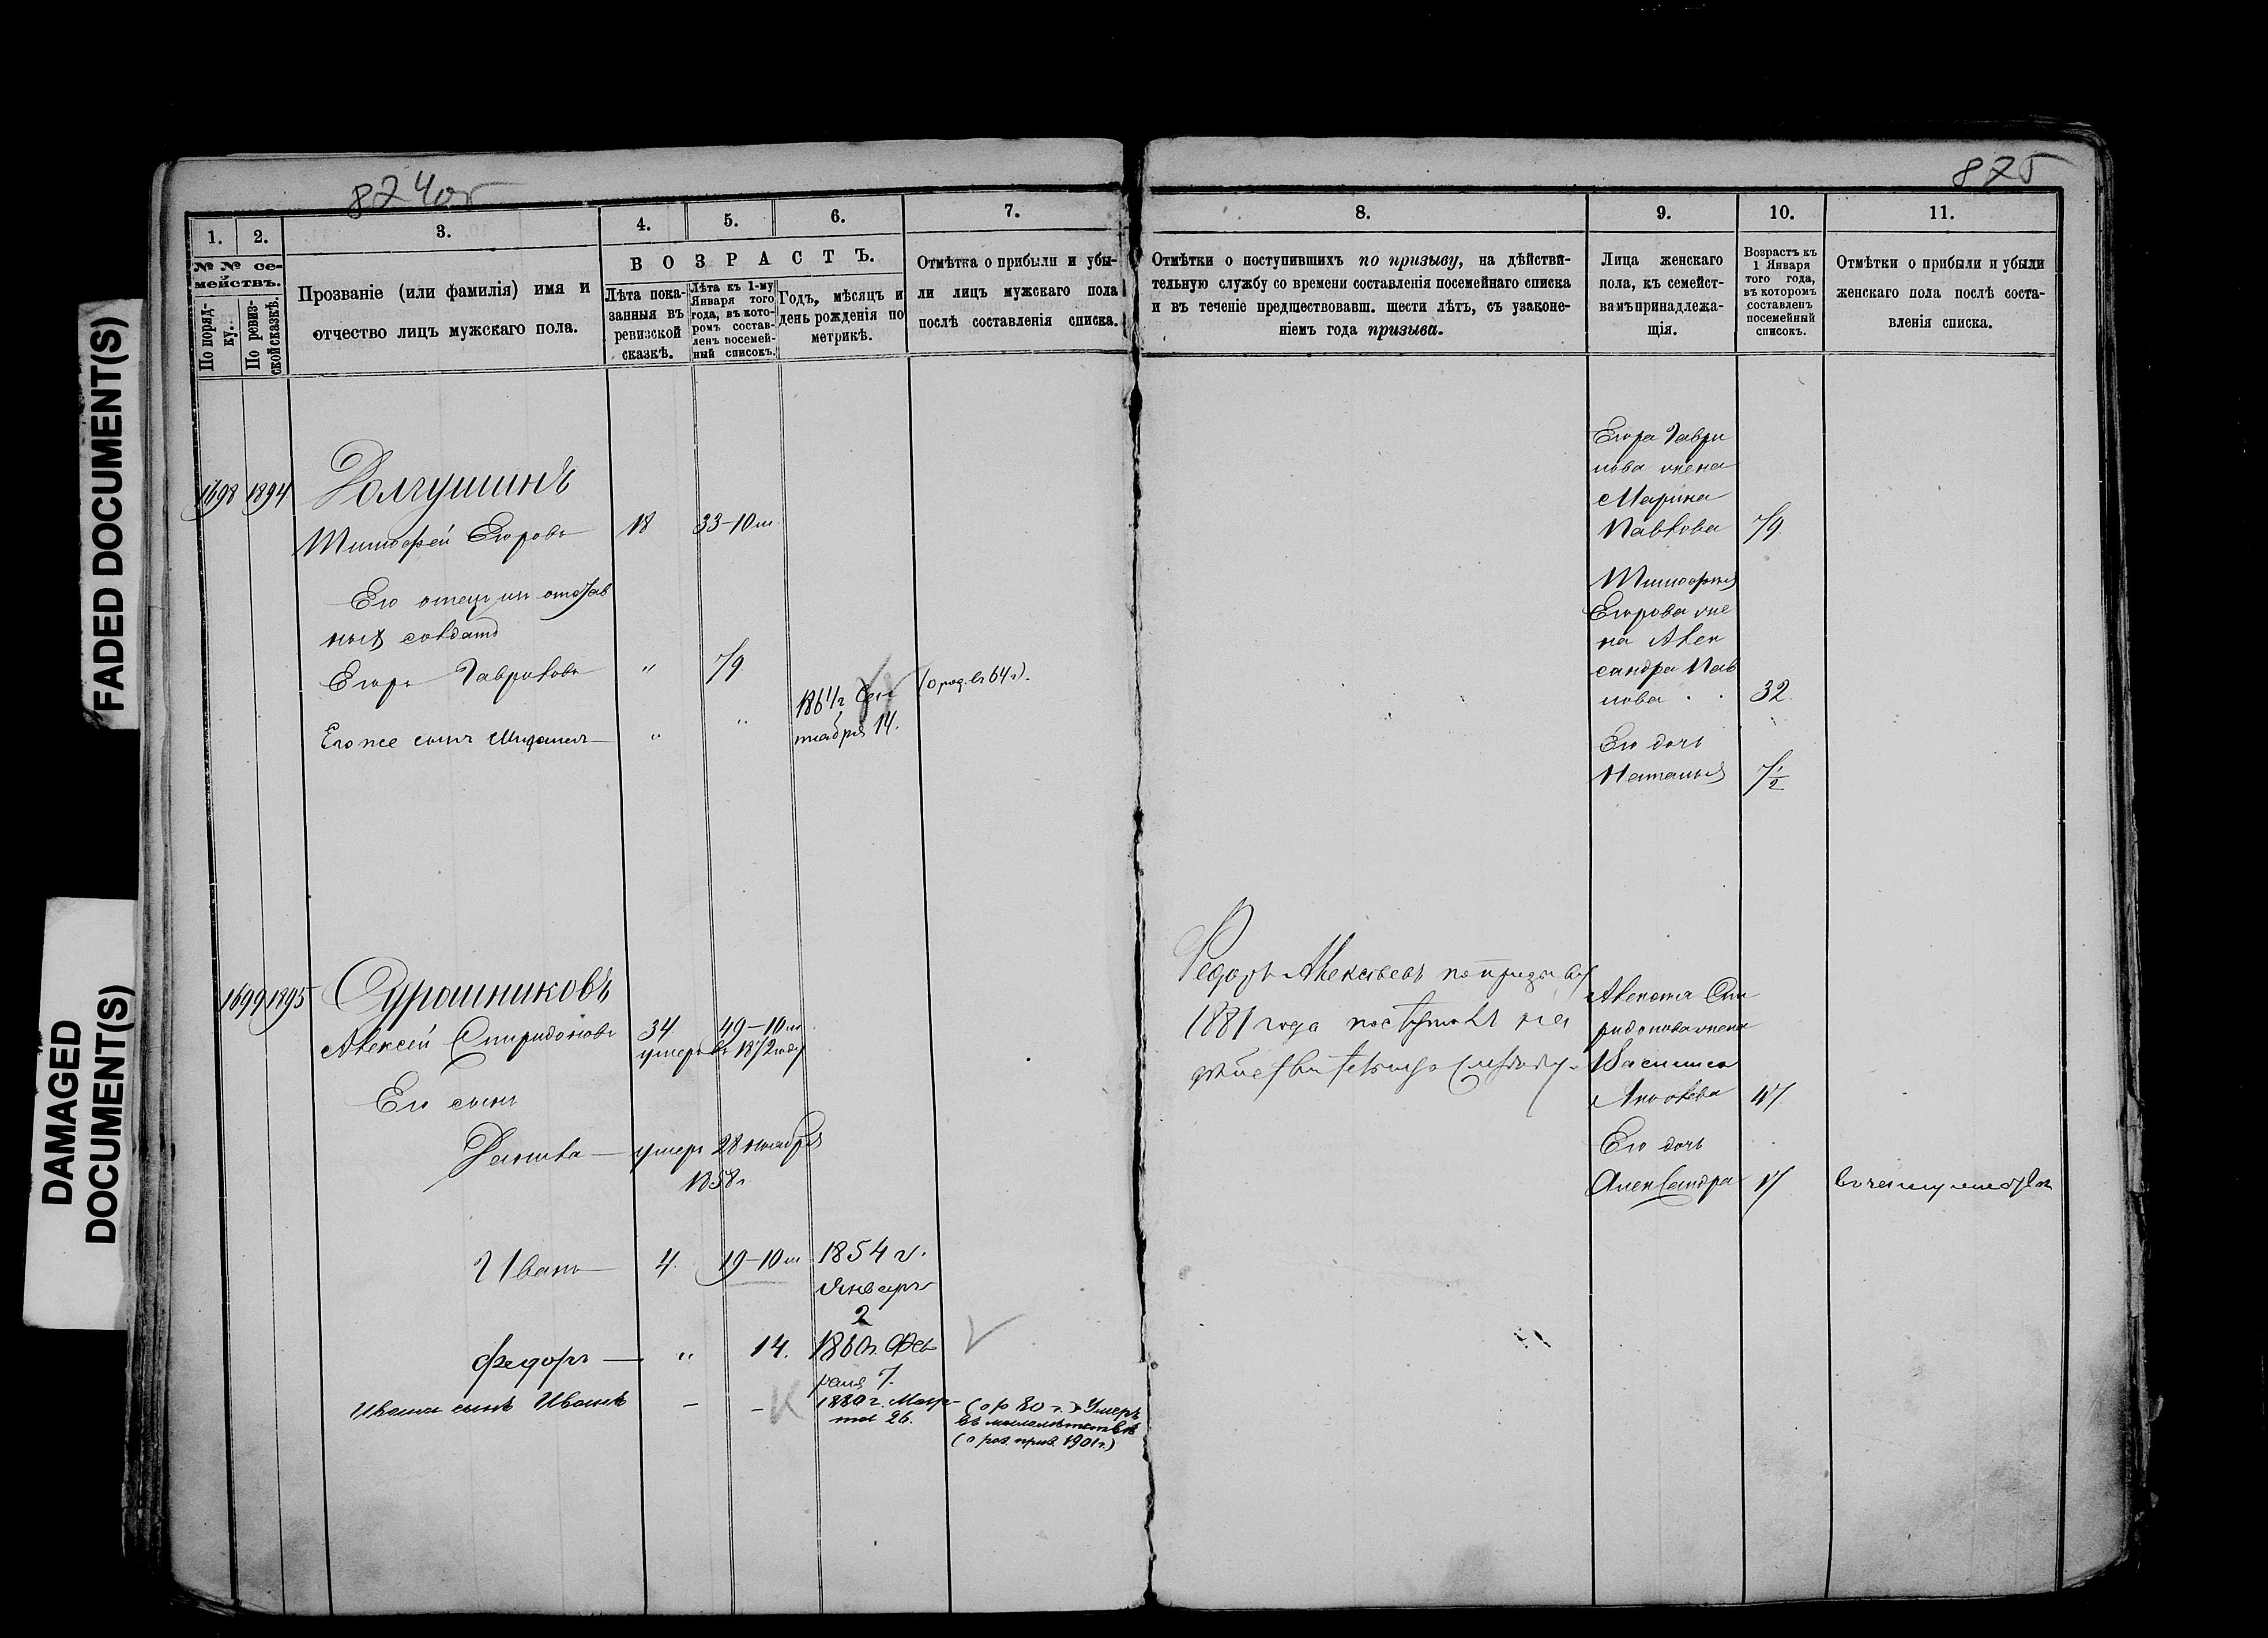 FADED DOCUMENT(S)
DAMAGED
DOCUMENT(S)
874 об
1. 2. 3. 4. 5. 6. 7.
№ № се-
мействъ.
По поряд-
ку.
По ревиз-
ской сказкѣ.
Прозваніе (или фамилія) имя и
отчество лицъ мужскаго пола.
ВОЗРАСТЪ.
Лѣта пока-
занныя въ
ревизской
сказкѣ.
Лѣта къ 1-му
Января того
года, въ кото-
ромъ состав-
ленъ посемей-
ный списокъ.
Годъ, мѣсяцъ и
день рожденія по
метрикѣ.
Отмѣтка о прибыли и убы-
ли лицъ мужскаго пола
послѣ составленія списка.
1698 1894 Долгушинъ
Тимофей Егоровъ 18 33-10 м
Его отецъ изъ отстав
ныхъ солдатъ
Егоръ Гавриловъ " 79
Егоже сынъ Михаилъ " " 1864 г Сен
тября 14. (о род. въ 64 г).
1699 1895 Сурошниковъ
Алексей Спиридоновъ 34 49-10 м
умеръ въ 1872 году
Его сынъ
Данила умеръ 28 ноября
1858 г
Иванъ 4. 19-10 м 1854 г.
Январь
2
Федоръ " 14. 1860 г. Фев
раля 7.
Ивана сынъ Иванъ - - 1880 г. Мар-
та 26. (о р 80 г.) Умеръ
въ малолетствѣ
(о роз. приз. 1901 г.)
875
8. 9. 10. 11.
Отмѣтки о поступившихъ по призыву, на дѣйстви-
тельную службу со времени составленія посемейнаго списка
и въ теченіе предшествовавш. шести лѣтъ, съ узаконе-
ніемъ года призыва.
Лица женскаго
пола, къ семейст-
вамъ принадлежа-
щія.
Возрастъ къ
1 Января
того года,
въ которомъ
составленъ
посемейный
списокъ.
Отмѣтки о прибыли и убыли
женскаго пола послѣ соста-
вленія списка.
Егора Гаври
лова жена
Марина
Павлова 79
Тимофея
Егорова же
на Алек
сандра Пав
лова 32.
Его дочь
Наталья 7 1/2
Федоръ Алексѣевъ по призыву
1881 года поступилъ на
дѣйствительную службу.
Алексея Спи
ридонова жена
Василиса
Яковлева 47
Его дочь
Александра 17